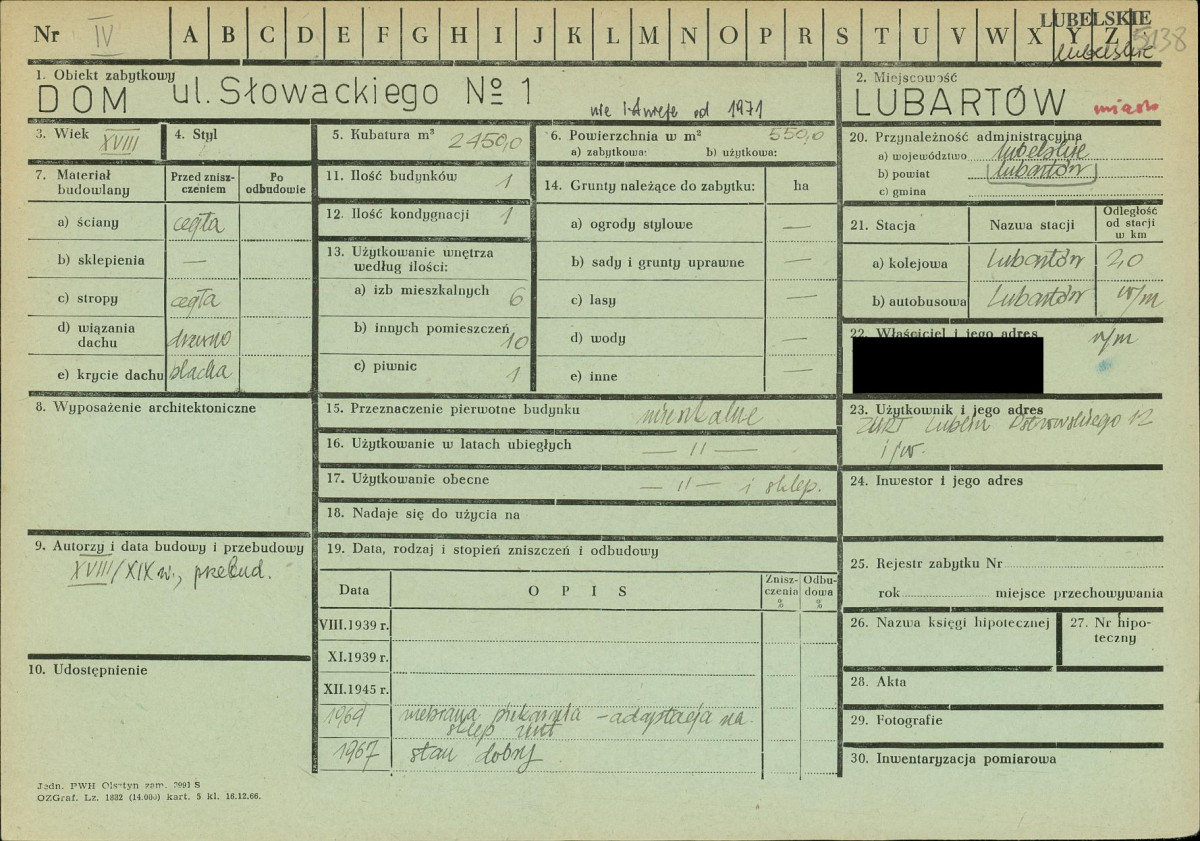 Nr IV A B C D E F G H I J K L M N O P R S T U V W X Y Z LUBELSKIE
lubelskie
1. Obiekt zabytkowy
DOM ul. Słowackiego № 1
nie istnieje od 1971
2. Miejscowość
LUBARTÓW miasto
3. Wiek XVIII
4. Styl
5. Kubatura m³ 2450,0
6. Powierzchnia w m² 550,0
a) zabytkowa: b) użytkowa:
7. Materiał budowlany
Przed zniszczeniem
Po odbudowie
a) ściany cegła
b) sklepienia —
c) stropy cegła
d) wiązania dachu drzewno
e) krycie dachu blacha
8. Wyposażenie architektoniczne
9. Autorzy i data budowy i przebudowy
XVIII/XIX w., przebud.
10. Udostępnienie
11. Ilość budynków 1
12. Ilość kondygnacji 1
13. Użytkowanie wnętrza
według ilości:
a) izb mieszkalnych 6
b) innych pomieszczeń 10
c) piwnic 1
14. Grunty należące do zabytku: ha
a) ogrody stylowe —
b) sady i grunty uprawne —
c) lasy —
d) wody —
e) inne —
15. Przeznaczenie pierwotne budynku mieszkalne
16. Użytkowanie w latach ubiegłych — " —
17. Użytkowanie obecne — " — i sklep.
18. Nadaje się do użycia na
19. Data, rodzaj i stopień zniszczeń i odbudowy
Data OPIS Zniszczenia % Odbudowa %
VIII.1939 r.
XI.1939 r.
XII.1945 r.
196
piekarnia – adaptacja na
sklep zurt
1967 stan dobry
20. Przynależność administracyjna
a) województwo lubelskie
b) powiat lubartów
c) gmina
21. Stacja Nazwa stacji Odległość od stacji w km
a) kolejowa Lubartów 2,0
b) autobusowa Lubartów w/m
22. Właściciel i jego adres
w/m
23. Użytkownik i jego adres
ZURT Lublin 12
i jw.
24. Inwestor i jego adres
25. Rejestr zabytku Nr
rok miejsce przechowywania
26. Nazwa księgi hipotecznej
27. Nr hipoteczny
28. Akta
29. Fotografie
30. Inwentaryzacja pomiarowa
Jedn. PWH Olsztyn zam. 2991 S
OZGraf. Lz. 1882 (14.000) kart. 5 kl. 16.12.66.